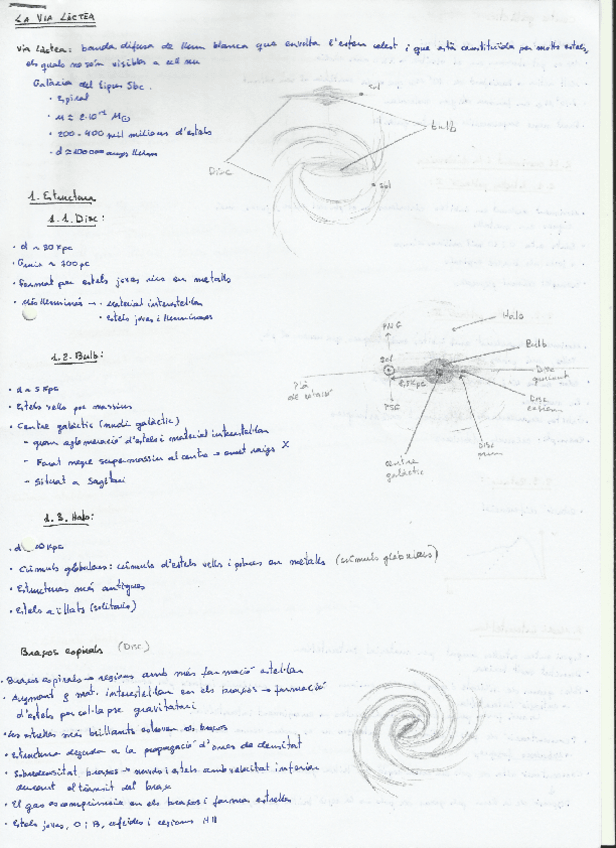 LA VIA LÀCTEA
Via Làctea: banda difusa de llum blanca que envolta l'esfera celest i que està constituïda per molts estels,
els quals no són visibles a ull nu
Galàxia del tipus Sbc.
• Espiral
• M ≈ 2·10 M⊙
• 200-400 mil milions d'estels
• d ≈ 100000 anys llum
Sol
Bulb
Disc
Sol
1. Estructura
1.1. Disc:
• d ~ 30 Kpc
• Gruix ~ 300 pc
• Format per estels joves rics en metalls
• Més lluminós → • Material interestel·lar
• estels joves i lluminosos
Halo
PNG
Bulb
Sol
Disc
Pla de rotació
8,5 Kpc
Disc
PSG
Disc
prim
centre
galàctic
1.2. Bulb:
• d ~ 5 Kpc
• Estels vells poc massius
• Centre galàctic (nucli galàctic)
- gran aglomeració d'estels i material interestel·lar
- Forat negre supermassiu al centre → emet raigs X
- Situat a Sagitari
1.3. Halo:
• d Kpc
• Cúmuls globulars: cúmuls d'estels vells i pobres en metalls (cúmuls globulars)
• Estructures més antigues
• Estels aïllats (solitaris)
Braços espirals (Disc)
• Braços espirals → regions amb més formació estel·lar
• Augment mat. interestel·lar en els braços → formació
d'estels per col·lapse gravitatori
• Les estrelles més brillants estan en els braços
• Estructura deguda a la propagació d'ones de densitat
• Sobredensitat braços → núvols i estels amb velocitat inferior
durant el trànsit del braç
• El gas es comprimeix en els braços i forma estrelles
• Estels joves, O i B, cefeides i regions HII